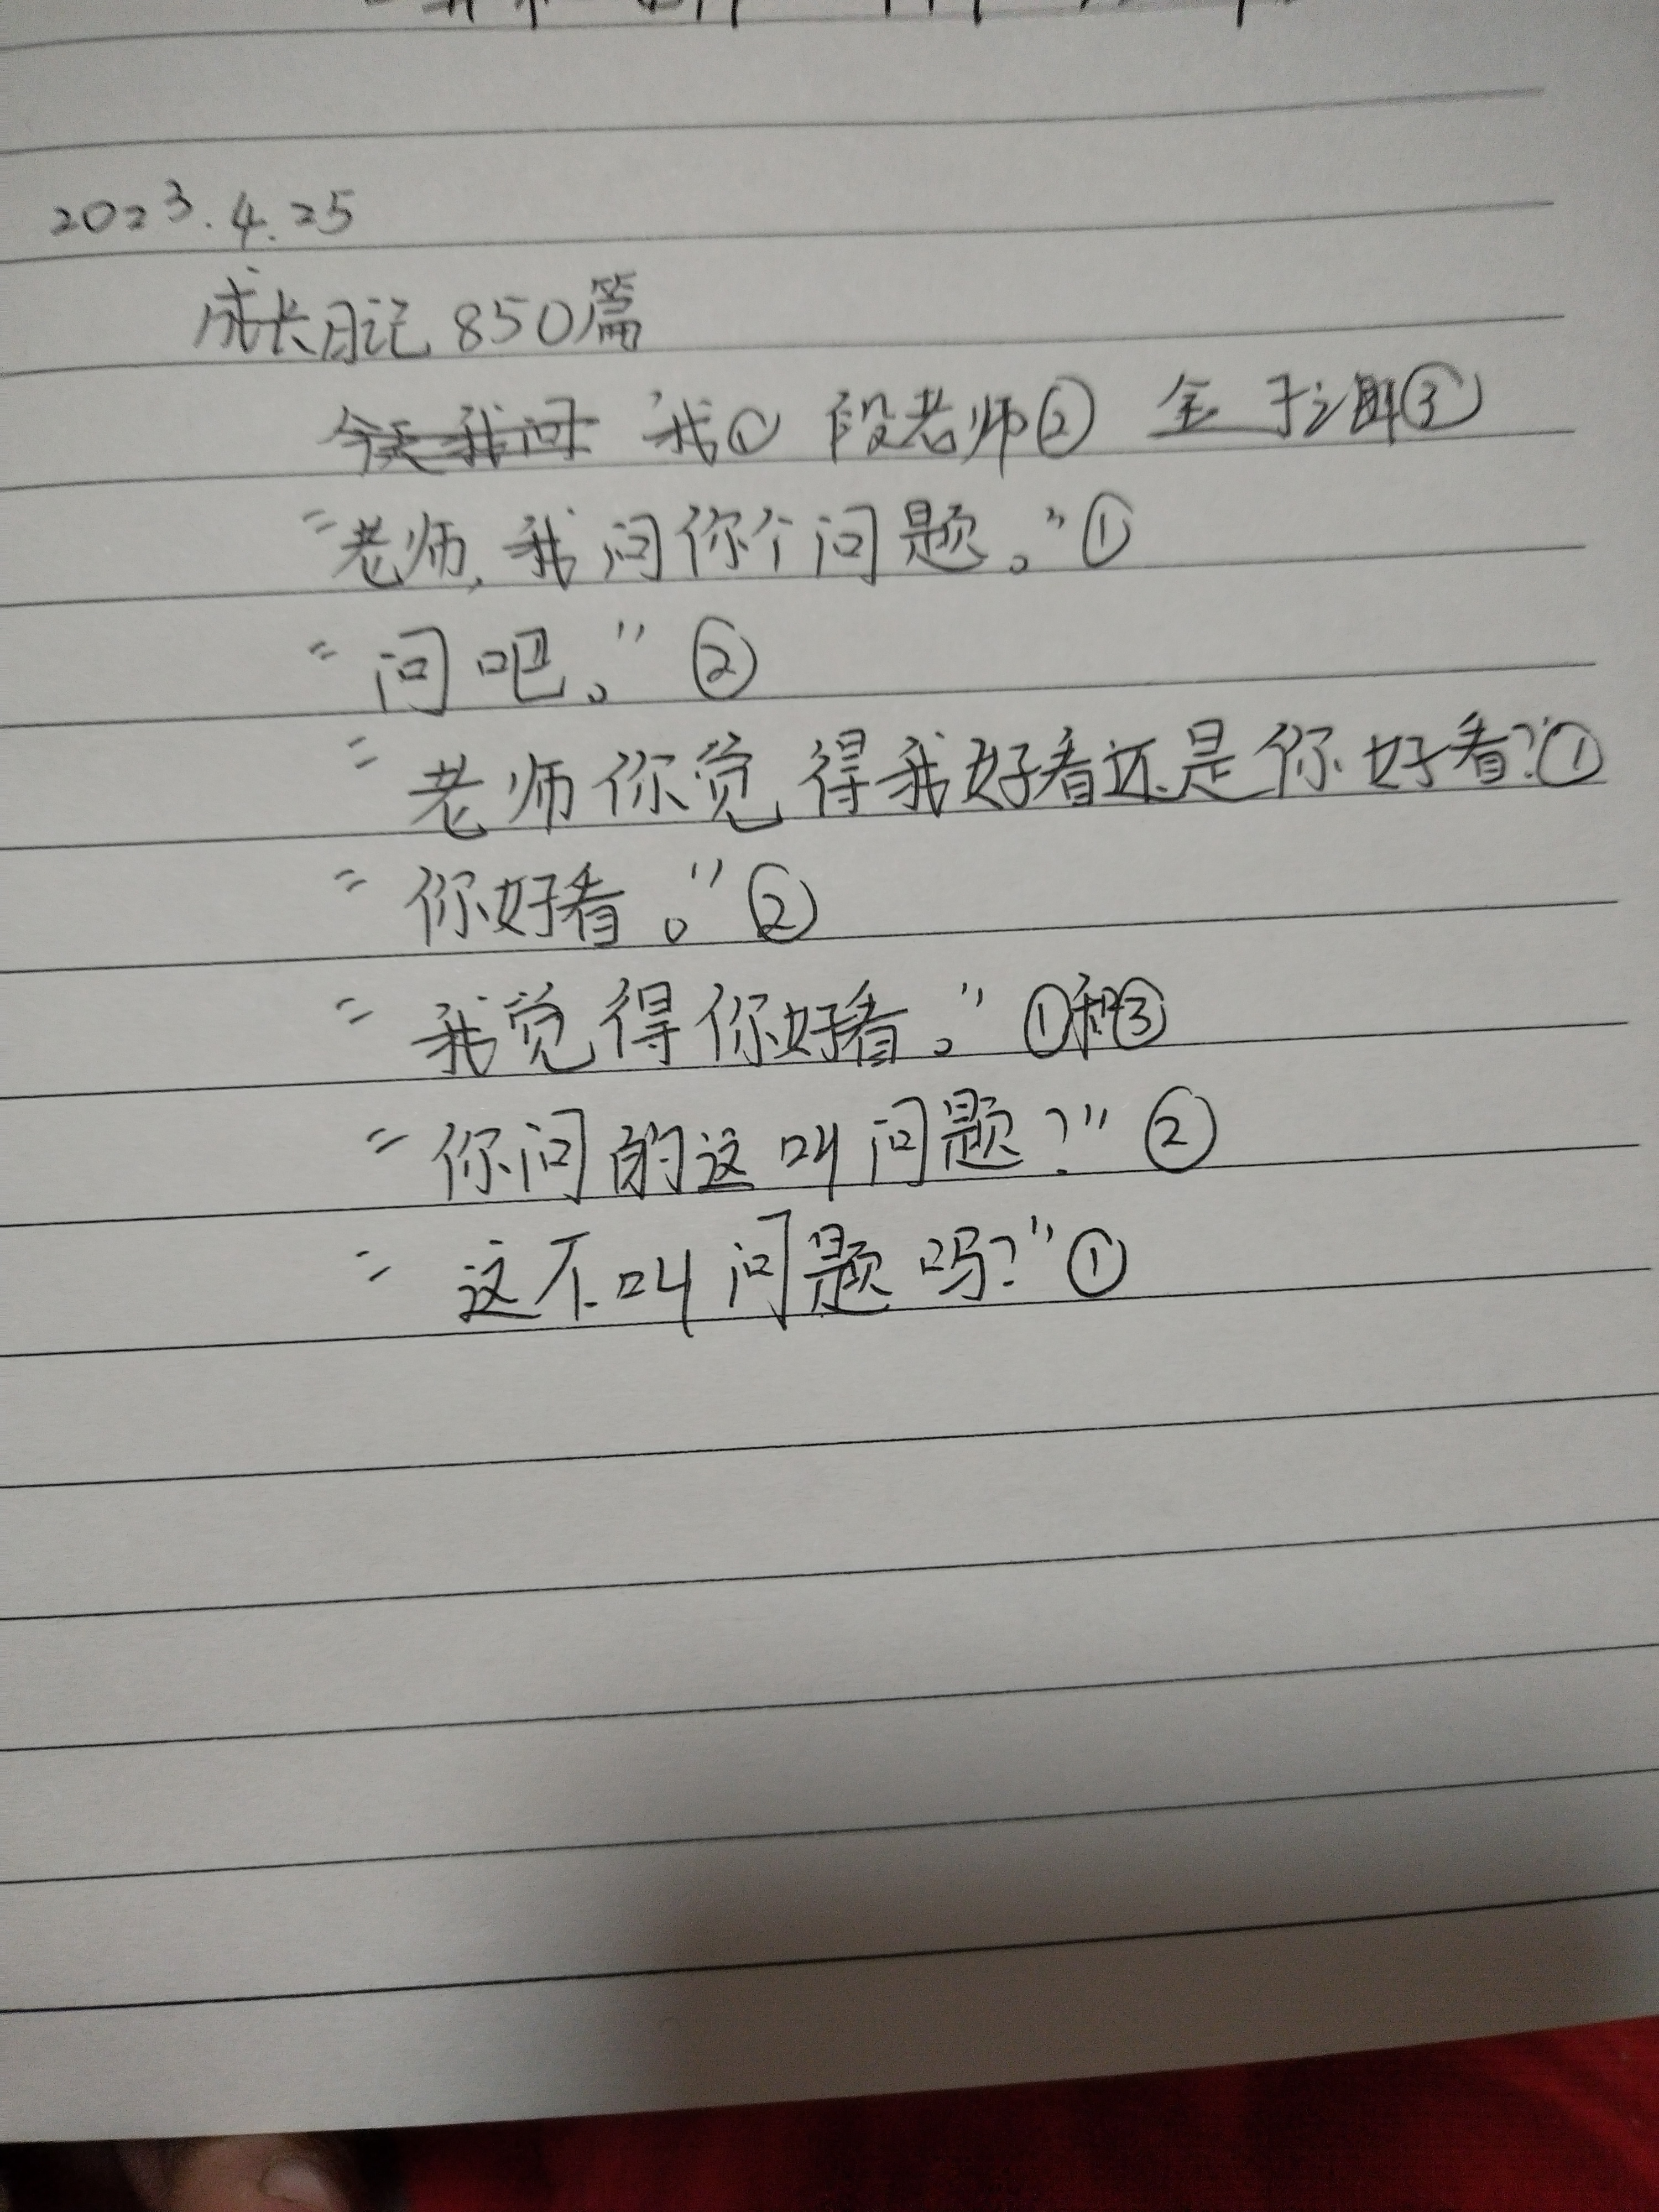 2023.4.25
成长日记 850篇
今天我问 我① 段老师② 金于③
"老师,我问你个问题。"①
"问吧。"②
"老师你觉得我好看还是你好看?"①
"你好看。"②
"我觉得你好看。"①和③
"你问的这叫问题?"②
"这不叫问题吗?"①